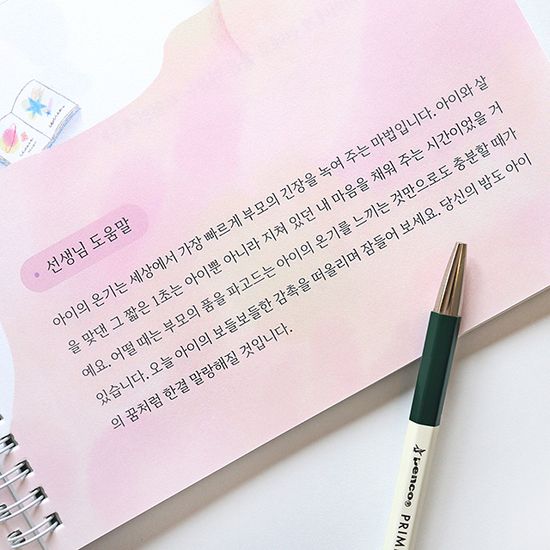 선생님 도움말
아이의 온기는 세상에서 가장 빠르게 부모의 긴장을 녹여 주는 마법입니다. 아이와 살
을 맞댄 그 짧은 1초는 아이뿐 아니라 지쳐 있던 내 마음을 채워 주는 시간이었을 거
예요. 어떨 때는 부모의 품을 파고드는 아이의 온기를 느끼는 것만으로도 충분할 때가
있습니다. 오늘 아이의 보들보들한 감촉을 떠올리며 잠들어 보세요. 당신의 밤도 아이
의 꿈처럼 한결 말랑해질 것입니다.
penco® PRIM